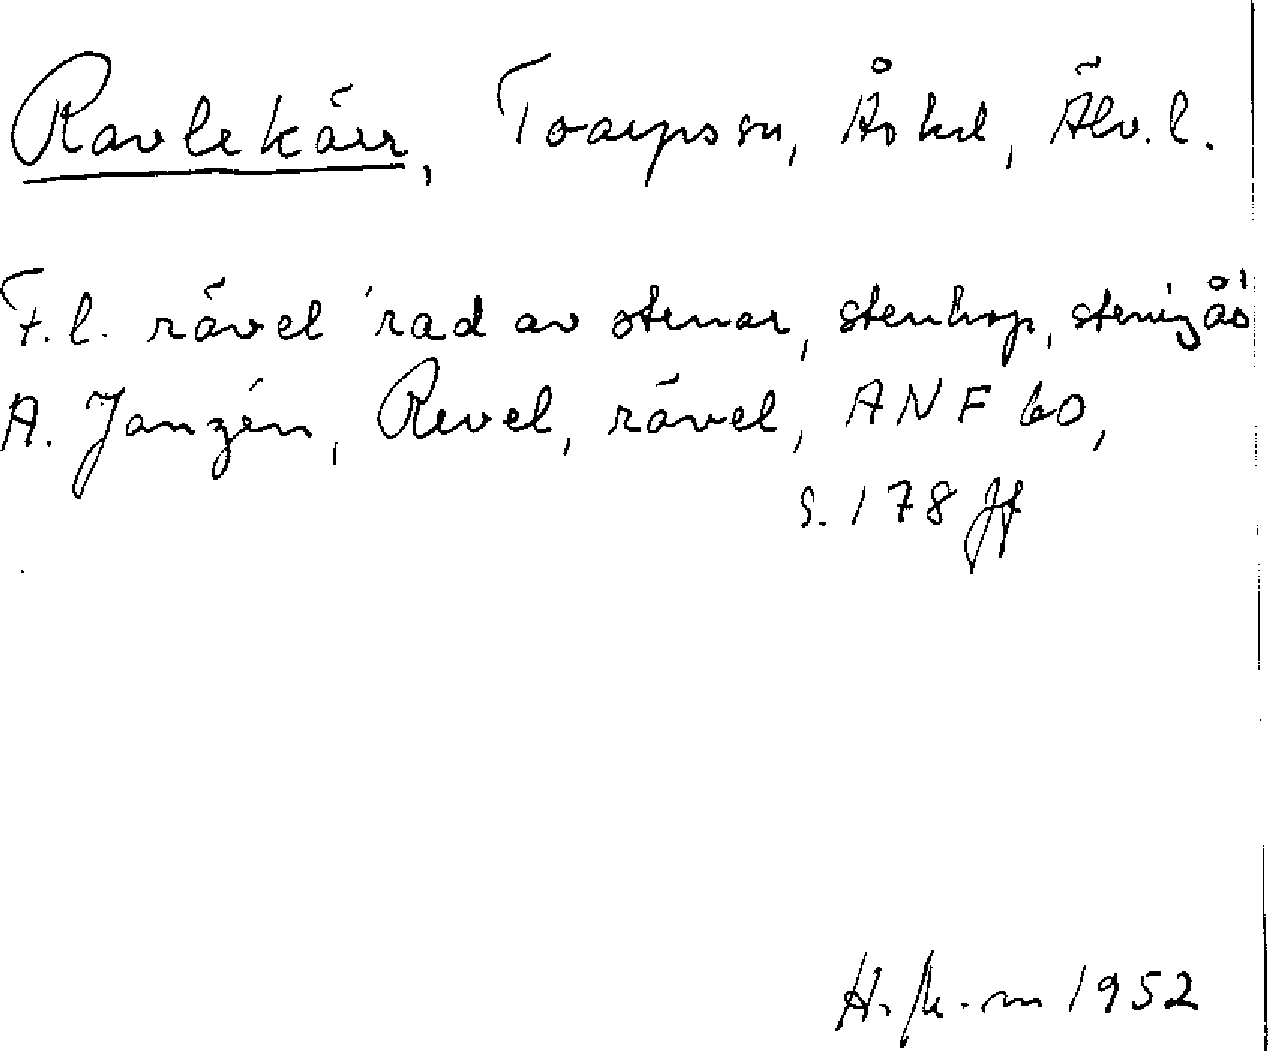 Ravlekärr, Toarps sn, Ås hd, Älv. l.
F.l. rävel 'rad av stenar, stenhop, stenig ås'
A. Janzén, Revel, rävel, ANF 60,
s. 178 ff
1952